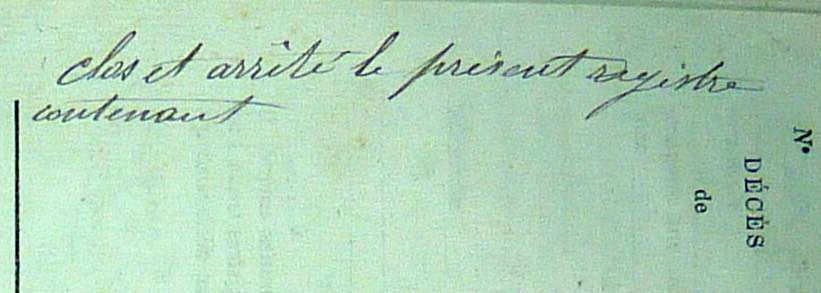 clos et arrêté le présent registre
contenant
N°
DÉCÈS
de